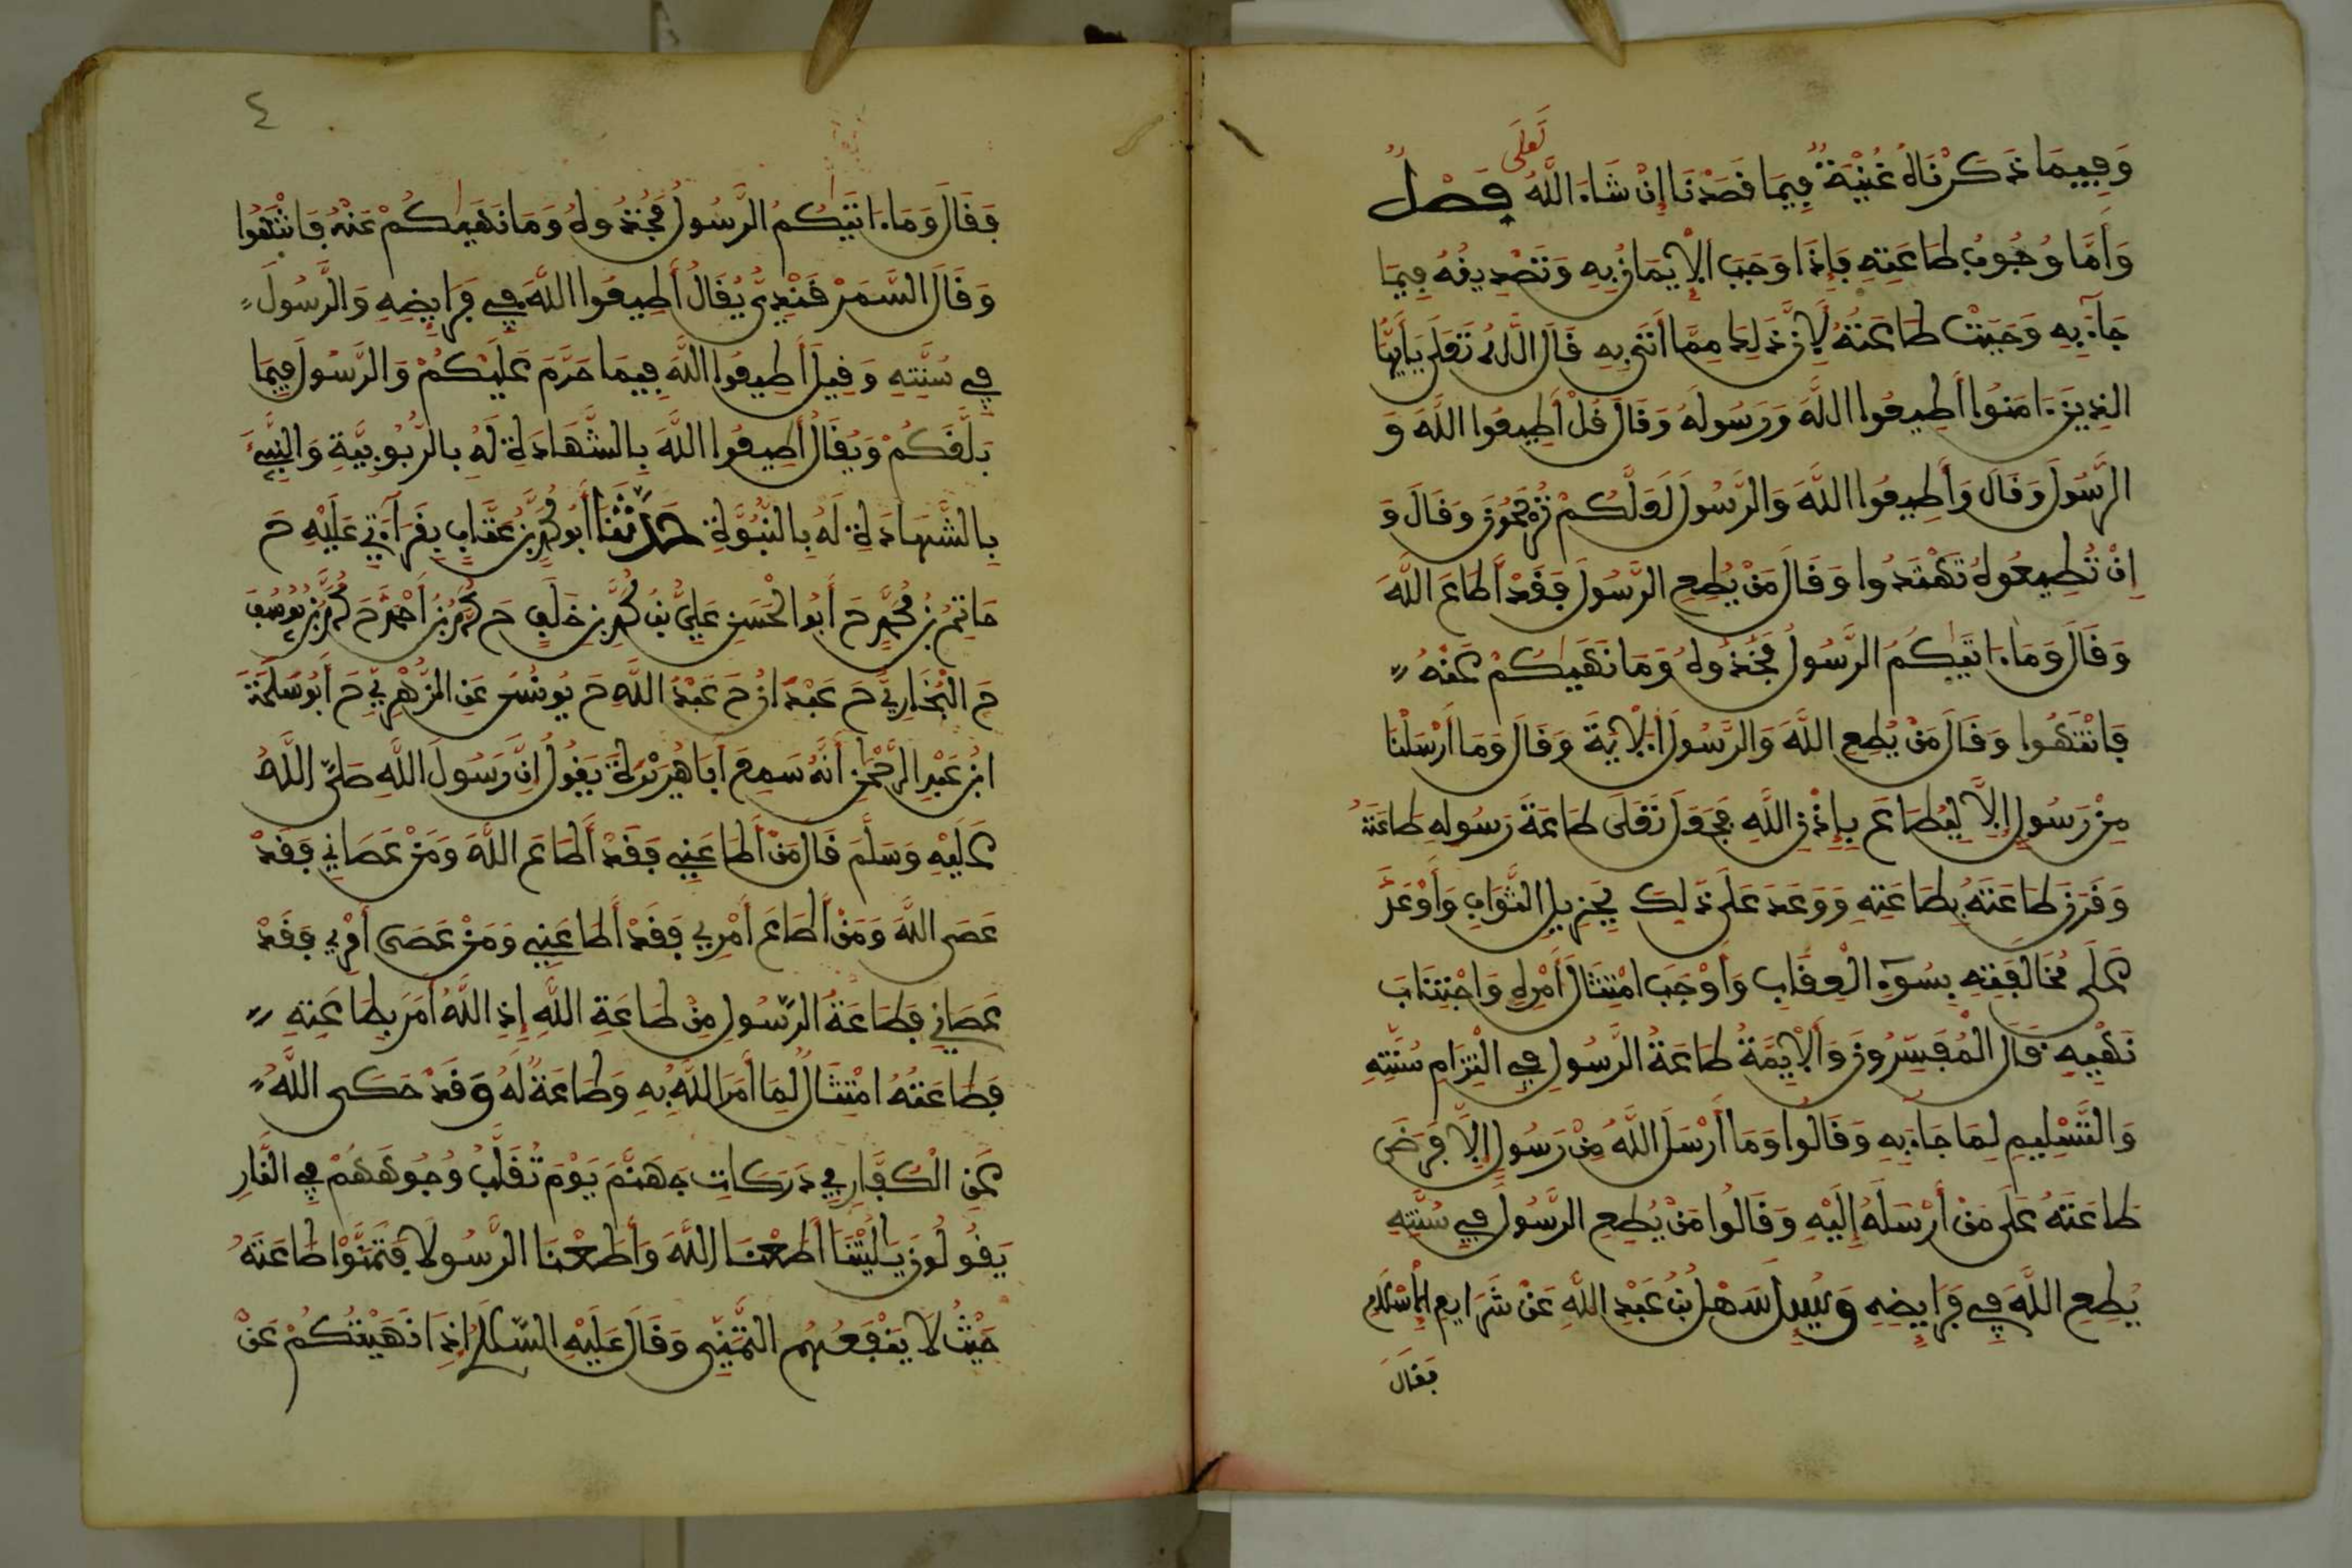 وَفِيمَا ذَكَرْنَاهُ غُنْيَةٌ فِيمَا قَصَدْنَا إِنْ شَاءَ اللَّهُ تَعَلَى فَصْلٌ
وَأَمَّا وُجُوبُ طَاعَتِهِ فَإِذَا وَجَبَ الْإِيمَانُ بِهِ وَتَصْدِيقُهُ فِيمَا
جَاءَ بِهِ وَجَبَتْ طَاعَتُهُ لِأَنَّ ذَلِكَ مِمَّا أَتَى بِهِ قَالَ اللَّهُ تَعَلَى يَأَيُّهَا
الذِينَ ءَامَنُوا أَطِيعُوا اللَّهَ وَرَسُولَهُ وَقَالَ قُلْ أَطِيعُوا اللَّهَ وَ
الرَّسُولَ وَقَالَ وَأَطِيعُوا اللَّهَ وَالرَّسُولَ لَعَلَّكُمْ تُرْحَمُونَ وَقَالَ وَ
إِنْ تُطِيعُوهُ تَهْتَدُوا وَقَالَ مَنْ يُطِعِ الرَّسُولَ فَقَدْ أَطَاعَ اللَّهَ
وَقَالَ وَمَا ءَاتَيكُمُ الرَّسُولُ فَخُذُوهُ وَمَا نَهَيكُمْ عَنْهُ
فَانْتَهُوا وَقَالَ مَنْ يُطِعِ اللَّهَ وَالرَّسُولَ الْآيَةَ وَقَالَ وَمَا أَرْسَلْنَا
مِنْ رَسُولٍ إِلَّا لِيُطَاعَ بِإِذْنِ اللَّهِ فَجَعَلَ تَعَلَى طَاعَةَ رَسُولِهِ طَاعَتَهُ
وَقَرَنَ طَاعَتَهُ بِطَاعَتِهِ وَوَعَدَ عَلَى ذَلِكَ بِجَزِيلِ الثَّوَابِ وَأَوْعَدَ
عَلَى مُخَالَفَتِهِ بِسُوءِ الْعِقَابِ وَأَوْجَبَ امْتِثَالَ أَمْرِهِ وَاجْتِنَابَ
نَهْيِهِ قَالَ الْمُفَسِّرُونَ وَالْأَيِمَّةُ طَاعَةُ الرَّسُولِ فِي الْتِزَامِ سُنَّتِهِ
وَالتَّسْلِيمِ لِمَا جَاءَ بِهِ وَقَالُوا وَمَا أَرْسَلَ اللَّهُ مِنْ رَسُولٍ إِلَّا فَرَضَ
طَاعَتَهُ عَلَى مَنْ أَرْسَلَهُ إِلَيْهِ وَقَالُوا مَنْ يُطِعِ الرَّسُولَ فِي سُنَّتِهِ
يُطِعِ اللَّهَ فِي فَرَايِضِهِ وَسُيِلَ سَهْلُ بْنُ عَبْدِ اللَّهِ عَنْ شَرَايِعِ الْإِسْلَامِ
فَقَالَ
٤
فَقَالَ وَمَا ءَاتَيكُمُ الرَّسُولُ فَخُذُوهُ وَمَا نَهَيكُمْ عَنْهُ فَانْتَهُوا
وَقَالَ السَّمَرْقَنْدِيُّ يُقَالُ أَطِيعُوا اللَّهَ فِي فَرَايِضِهِ وَالرَّسُولَ
فِي سُنَّتِهِ وَقِيلَ أَطِيعُوا اللَّهَ فِيمَا حَرَّمَ عَلَيْكُمْ وَالرَّسُولَ فِيمَا
بَلَّغَكُمْ وَيُقَالُ أَطِيعُوا اللَّهَ بِالشَّهَادَةِ لَهُ بِالرُّبُوبِيَّةِ وَالنَّبِيَّ
بِالشَّهَادَةِ لَهُ بِالنُّبُوَّةِ حَدَّثَنَا أَبُو مُحَمَّدِ بْنُ عَتَّابٍ بِقَرَاءَتِي عَلَيْهِ حَ
حَاتِمُ بْنُ مُحَمَّدٍ حَ أَبُو الْحَسَنِ عَلِيُّ بْنُ مُحَمَّدِ بْنِ خَلَفٍ حَ مُحَمَّدُ بْنُ أَحْمَدَ حَ مُحَمَّدُ بْنُ يُوسُفَ
حَ الْبُخَارِيُّ حَ عَبْدَانُ حَ عَبْدُ اللَّهِ حَ يُونُسُ عَنِ الزُّهْرِيِّ حَ أَبُو سَلَمَةَ
ابْنُ عَبْدِ الرَّحْمَنِ أَنَّهُ سَمِعَ أَبَا هُرَيْرَةَ يَقُولُ إِنَّ رَسُولَ اللَّهِ صَلَّى اللَّهُ
عَلَيْهِ وَسَلَّمَ قَالَ مَنْ أَطَاعَنِي فَقَدْ أَطَاعَ اللَّهَ وَمَنْ عَصَانِي فَقَدْ
عَصَى اللَّهَ وَمَنْ أَطَاعَ أَمْرِي فَقَدْ أَطَاعَنِي وَمَنْ عَصَى أَمْرِي فَقَدْ
عَصَانِي فَطَاعَةُ الرَّسُولِ مِنْ طَاعَةِ اللَّهِ إِذِ اللَّهُ أَمَرَ بِطَاعَتِهِ
فَطَاعَتُهُ امْتِثَالٌ لِمَا أَمَرَ اللَّهُ بِهِ وَطَاعَةٌ لَهُ وَقَدْ حَكَى اللَّهُ
عَنِ الْكُفَّارِ فِي دَرَكَاتِ جَهَنَّمَ يَوْمَ تُقَلَّبُ وُجُوهُهُمْ فِي النَّارِ
يَقُولُونَ يَالَيْتَنَا أَطَعْنَا اللَّهَ وَأَطَعْنَا الرَّسُولَا فَتَمَنَّوْا طَاعَتَهُ
حَيْثُ لَا يَنْفَعُهُمُ التَّمَنِّي وَقَالَ عَلَيْهِ السَّلَامُ إِذَا نَهَيْتُكُمْ عَنْ